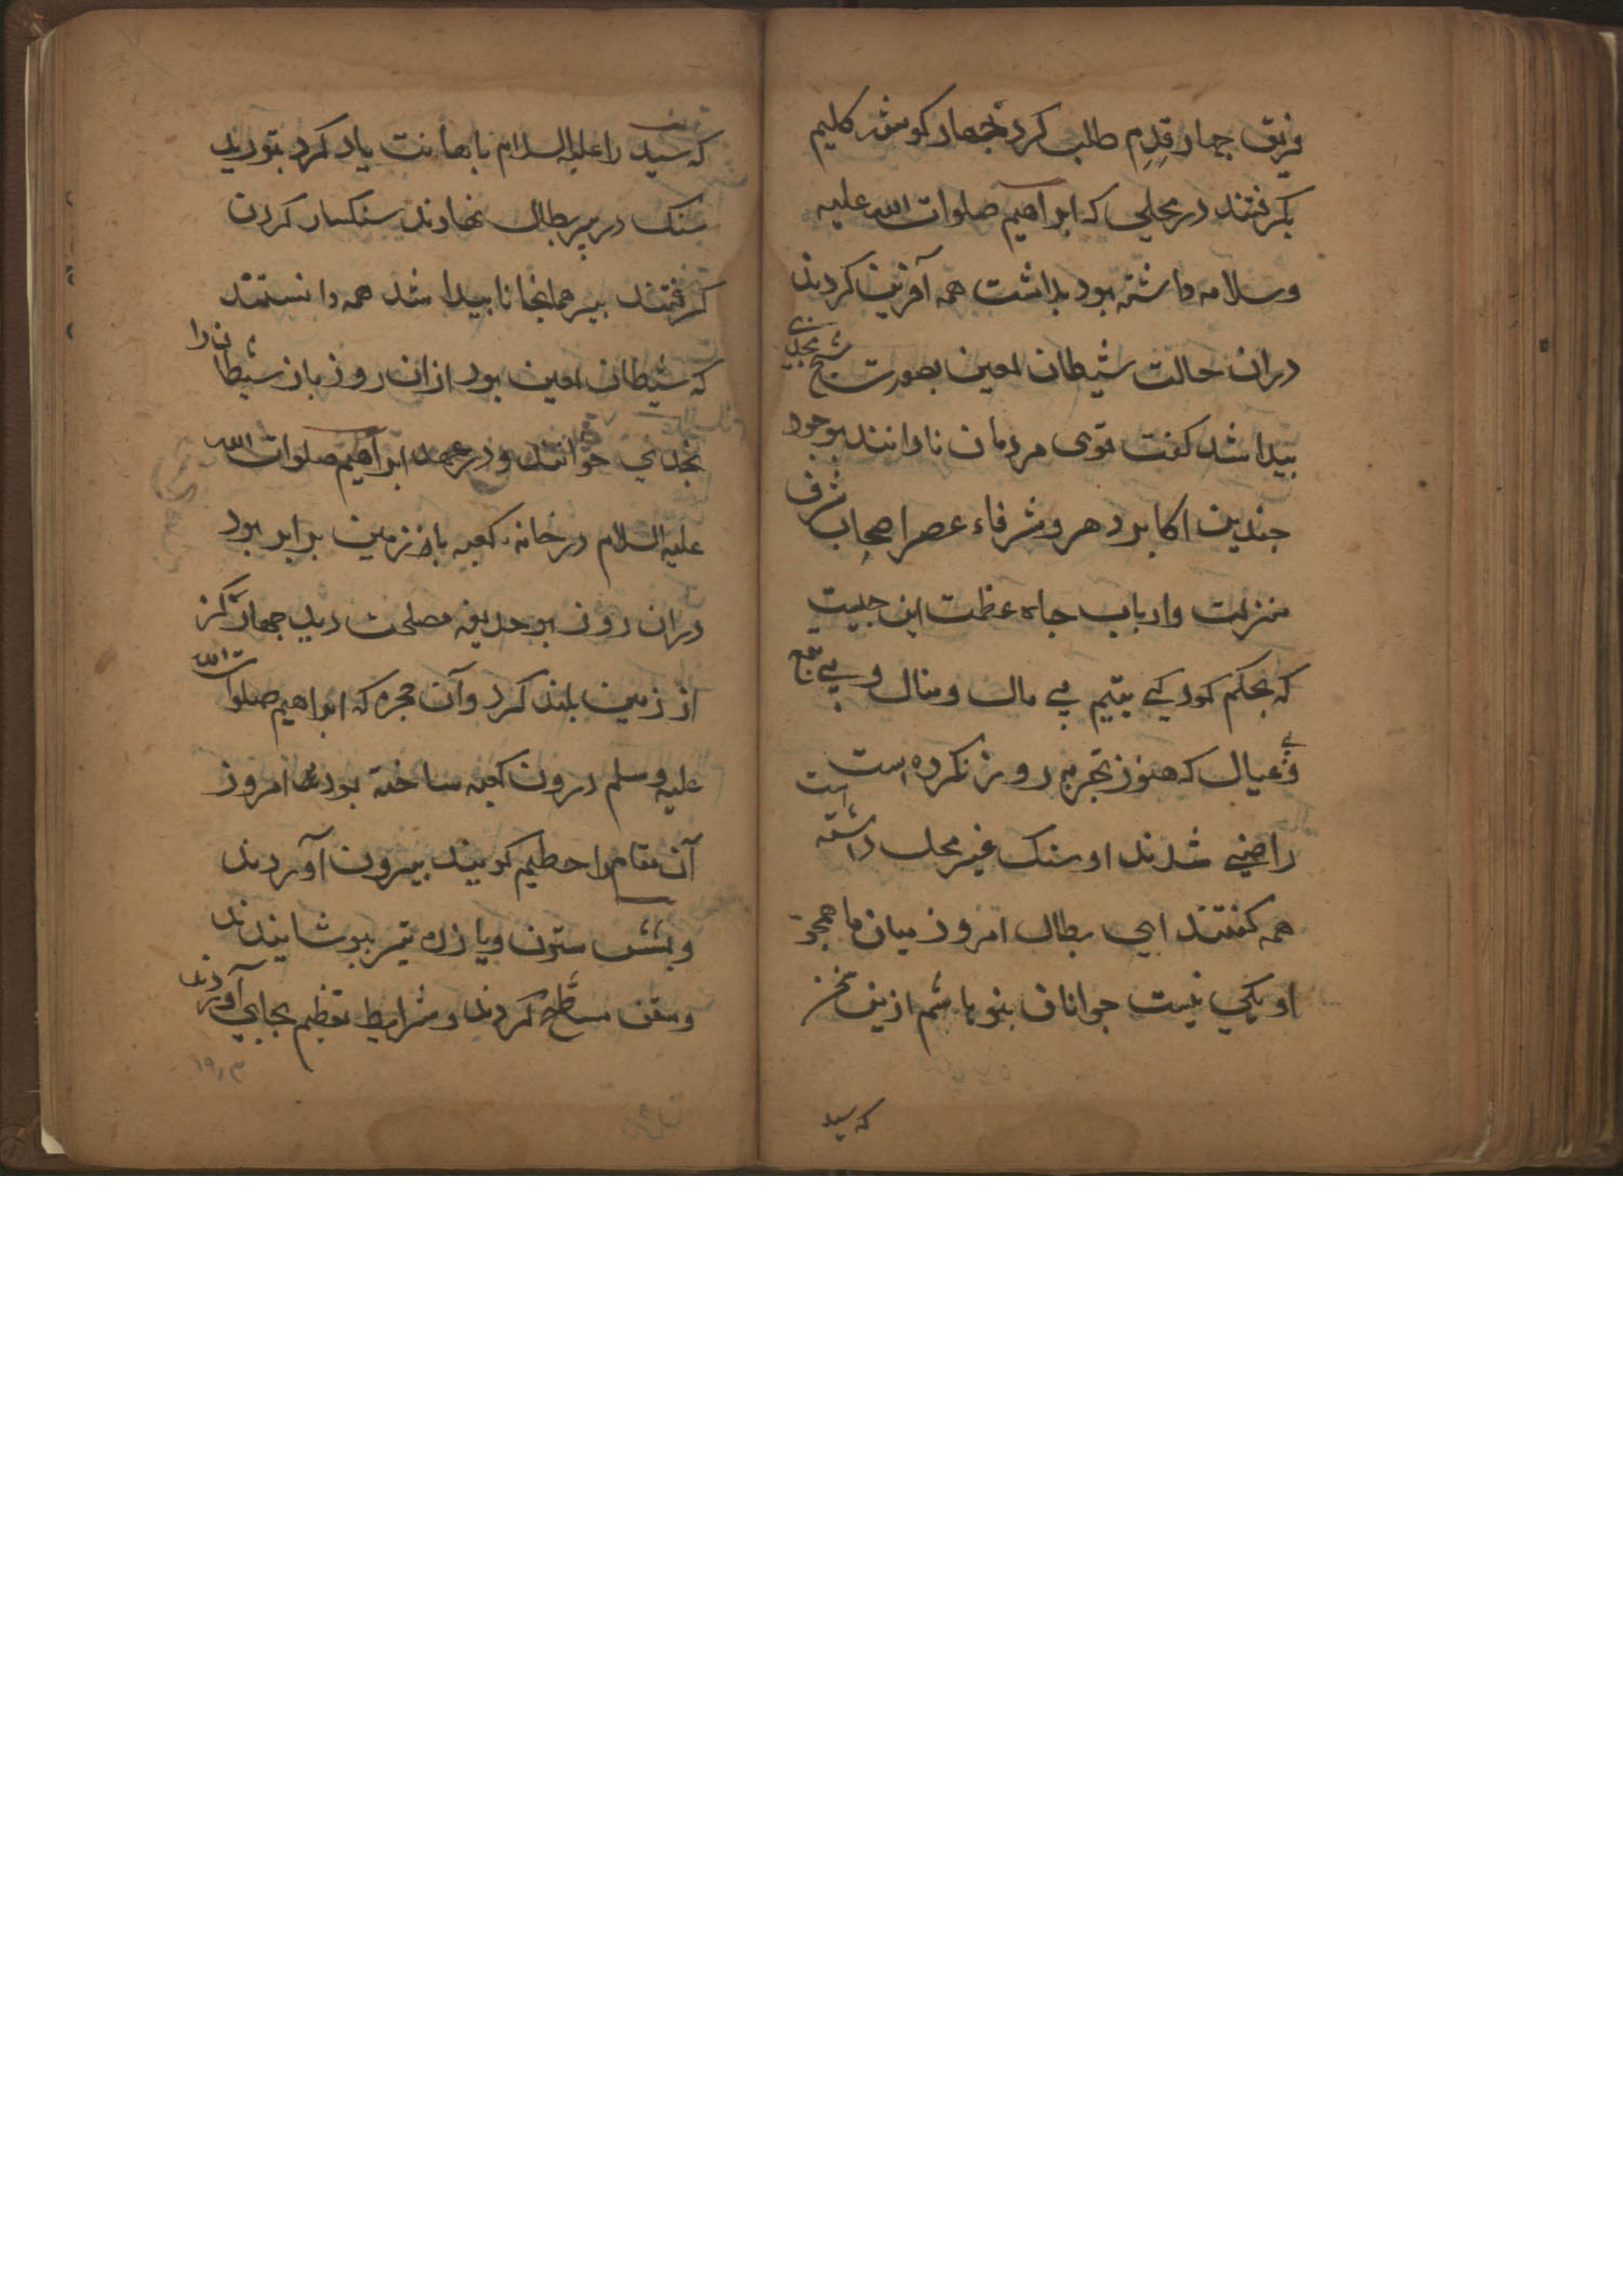 فریق چهار قدم طلب کرد تا چهار کوشه کلیم
بکرفتند در محلی که ابراهیم صلوات الله علیه
وسلامه داشته بود بداشت همه آفرین کردند
دران حالت شیطان لعین بصورت شیخ نجدی
پیدا شد کفت قوی مردمان نادانند بوجود
چندین اکابر دهر و شرفاء عصر اصحاب شرف
منزلت وارباب جاه عظمت این چیست
که بحکم کودکی یتیم بی مال ومنال و بی تبع
وبی عیال که هنوز تجربه روز نکرده است
راضی شدند او سنک غیر محل داشته است
همه کفتند ای بطال امروز میان ما همچو
او یکی نیست جوانان بنو هاشم ازین سخن
که سید
که سید را علیه السلام باهانت یاد کرد بتوریدند
سنک در پیر بطال نهادند سنکسار کردن
کرفتند پیر همانجا ناپیدا شد همه دانستند
که شیطان لعین بود ازان روز باز شیطان را
نجدی خوانند و در عهد ابراهیم صلوات الله
علیه السلام در خانه کعبه باز زمین برابر بود
دران روز بو حذیفه مصلحت دید چهار کز
از زمین بلند کرد وآن حجره که ابراهیم صلوات الله
علیه وسلم درون کعبه ساخته بود که امروز
آن مقام را حطیم کویند بیرون آوردند
وبشش ستون ویازده تیر بپوشانیدند
وسقف مسطح کردند وشرایط تعظیم بجای آوردند